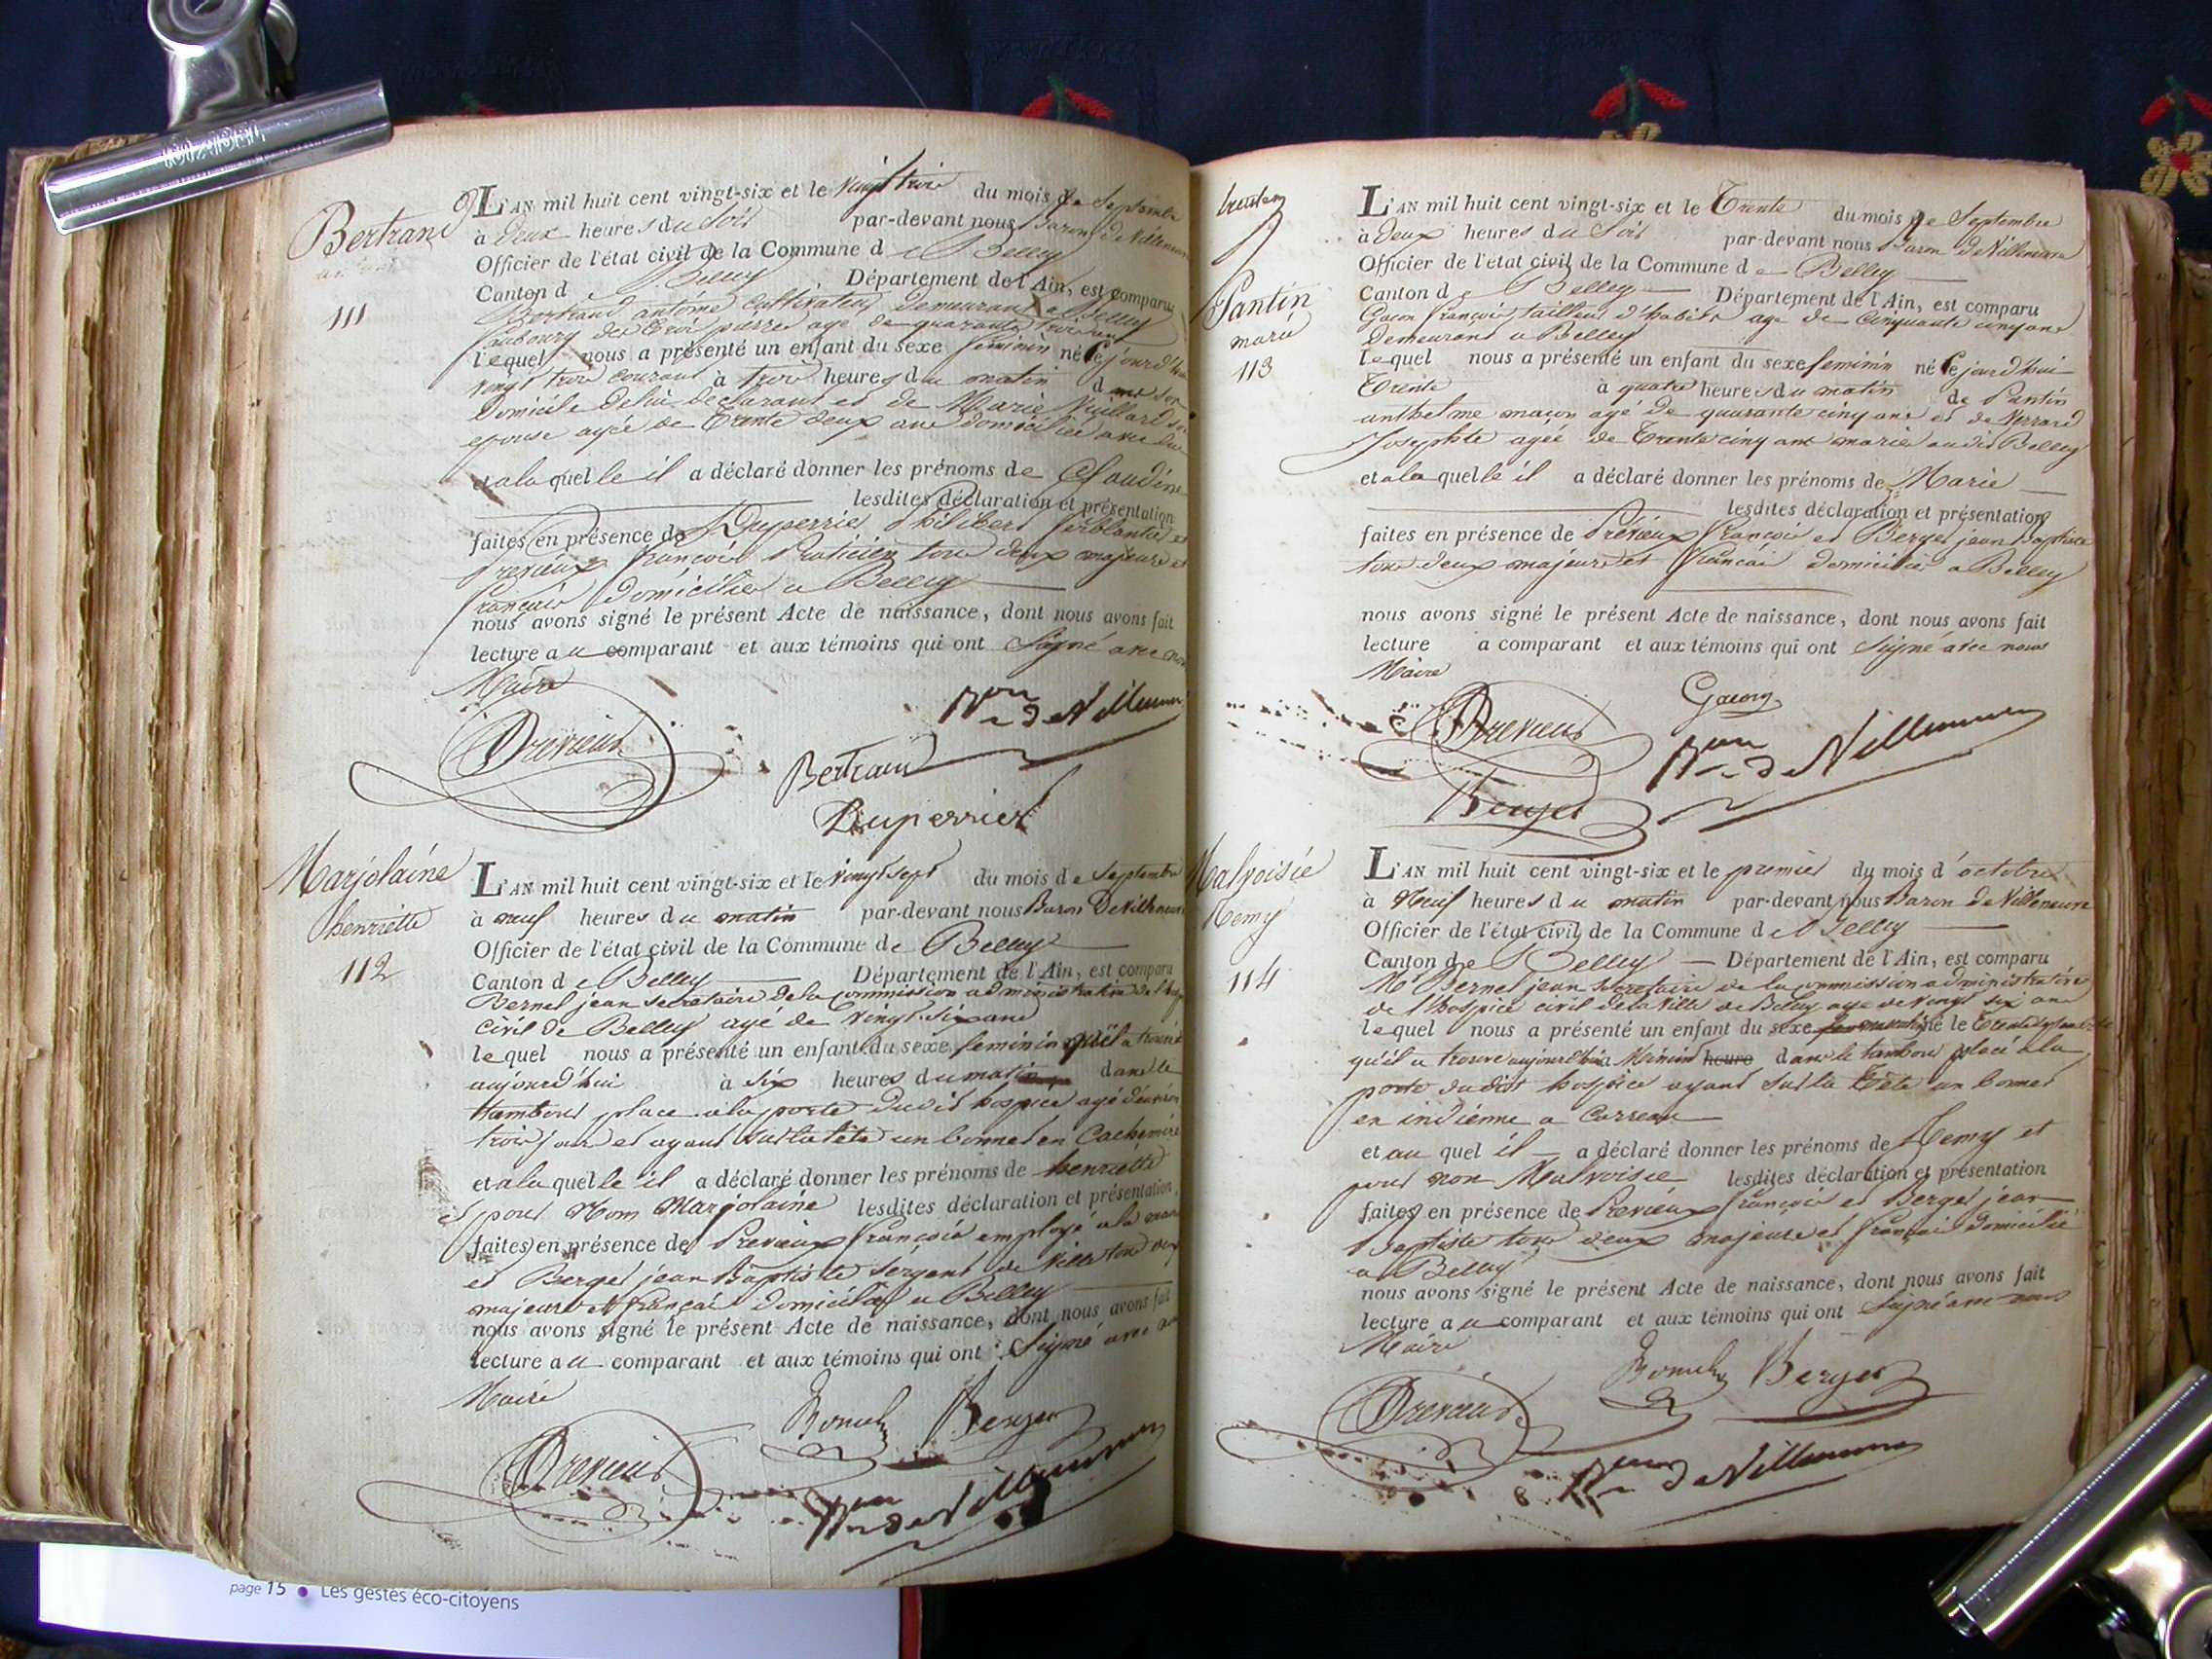 Bertrand
111
L'AN mil huit cent vingt-six et le vingt trois du mois de Septembre
à deux heures du Soir par-devant nous Baron de Villeneuve
Officier de l'état civil de la Commune de Belley
Canton de Belley Département de l'Ain, est comparu
Bertrand antoine Cultivateur demeurant a Belley
faubourg des trois pierres agé de quarante trois ans
lequel nous a présenté un enfant du sexe féminin né Cejourd'hui
vingt trois courant à trois heures du matin
Domicile de lui déclarant et de Marie Vuillard son
epouse agée de Trente deux ans domiciliée avec lui
et a la quelle il a déclaré donner les prénoms de Claudine
lesdites déclaration et présentation
faites en présence de Duperrier Philibert ferblantier et
Prévieux françois Praticien tous deux majeurs et
français domiciliés a Belley
nous avons signé le présent Acte de naissance, dont nous avons fait
lecture au comparant et aux témoins qui ont Signé avec nous
Maire
Bon de Villeneuve
Prévieux
Bertrand
Duperrier
Marjolaine
henriette
112
L'AN mil huit cent vingt-six et le vingt sept du mois de Septembre
à neuf heures du matin par-devant nous Baron De Villeneuve
Officier de l'état civil de la Commune de Belley
Canton de Belley Département de l'Ain, est comparu
Bernel jean secretaire de la commission administrative de l'hospice
civil de Belley agé de vingt Six ans
lequel nous a présenté un enfant du sexe feminin qu'il a trouvé
aujourd'hui à six heures du matin dans le
tambour place a la porte dudit hospice agé d'environ
trois jours et ayant sur la tête un bonnet en Cachemire
et a la quelle il a déclaré donner les prénoms de henriette
et pour Nom Marjolaine lesdites déclaration et présentation
faites en présence de Prévieux françois employé a la mairie
et Berger jean Baptiste Sergent de Ville tous deux
majeurs et français domiciliés a Belley
nous avons signé le présent Acte de naissance, dont nous avons fait
lecture au comparant et aux témoins qui ont Signé avec nous
Maire
Berger
Prévieux
Bon de Villeneuve
Pantin
marie
113
L'AN mil huit cent vingt-six et le Trente du mois de Septembre
à deux heures du Soir par-devant nous Baron de Villeneuve
Officier de l'état civil de la Commune de Belley
Canton de Belley Département de l'Ain, est comparu
Gacon françois tailleur d'habits agé de Cinquante cinq ans
demeurant a Belley
lequel nous a présenté un enfant du sexe feminin né Cejourd'hui
Trente à quatre heures du matin de Pantin
anthelme maçon agé de quarante cinq ans et de Verrard
Josephte agée de Trente cinq ans mariés audit Belley
et a la quelle il a déclaré donner les prénoms de Marie
lesdites déclaration et présentation
faites en présence de Prévieux françois et Berger jean Baptiste
tous deux majeurs et français domiciliés a Belley
nous avons signé le présent Acte de naissance, dont nous avons fait
lecture a comparant et aux témoins qui ont Signé avec nous
Maire
Gacon
Prévieux
Bon de Villeneuve
Berger
Malvoisie
Remy
114
L'AN mil huit cent vingt-six et le premier du mois d'octobre
à Neuf heures du matin par-devant nous Baron de Villeneuve
Officier de l'état civil de la Commune de Belley
Canton de Belley Département de l'Ain, est comparu
Mr Bernel jean Secretaire de la commission administrative
de l'hospice civil de la Ville de Belley agé de vingt six ans
lequel nous a présenté un enfant du sexe né le Trente septembre
qu'il a trouvé aujourd'hui a Minuit heure dans le tambour placé a la
porte dudit hospice ayant sur la Tête un bonnet
en indienne a Carreau
et au quel il a déclaré donner les prénoms de Remy et
pour nom Malvoisie lesdites déclaration et présentation
faites en présence de Prévieux françois et Berger jean
Baptiste tous deux majeurs et français domiciliés
a Belley
nous avons signé le présent Acte de naissance, dont nous avons fait
lecture au comparant et aux témoins qui ont Signé avec nous
Maire
Berger
Prévieux
Bon de Villeneuve
page 15 • Les gestes éco-citoyens